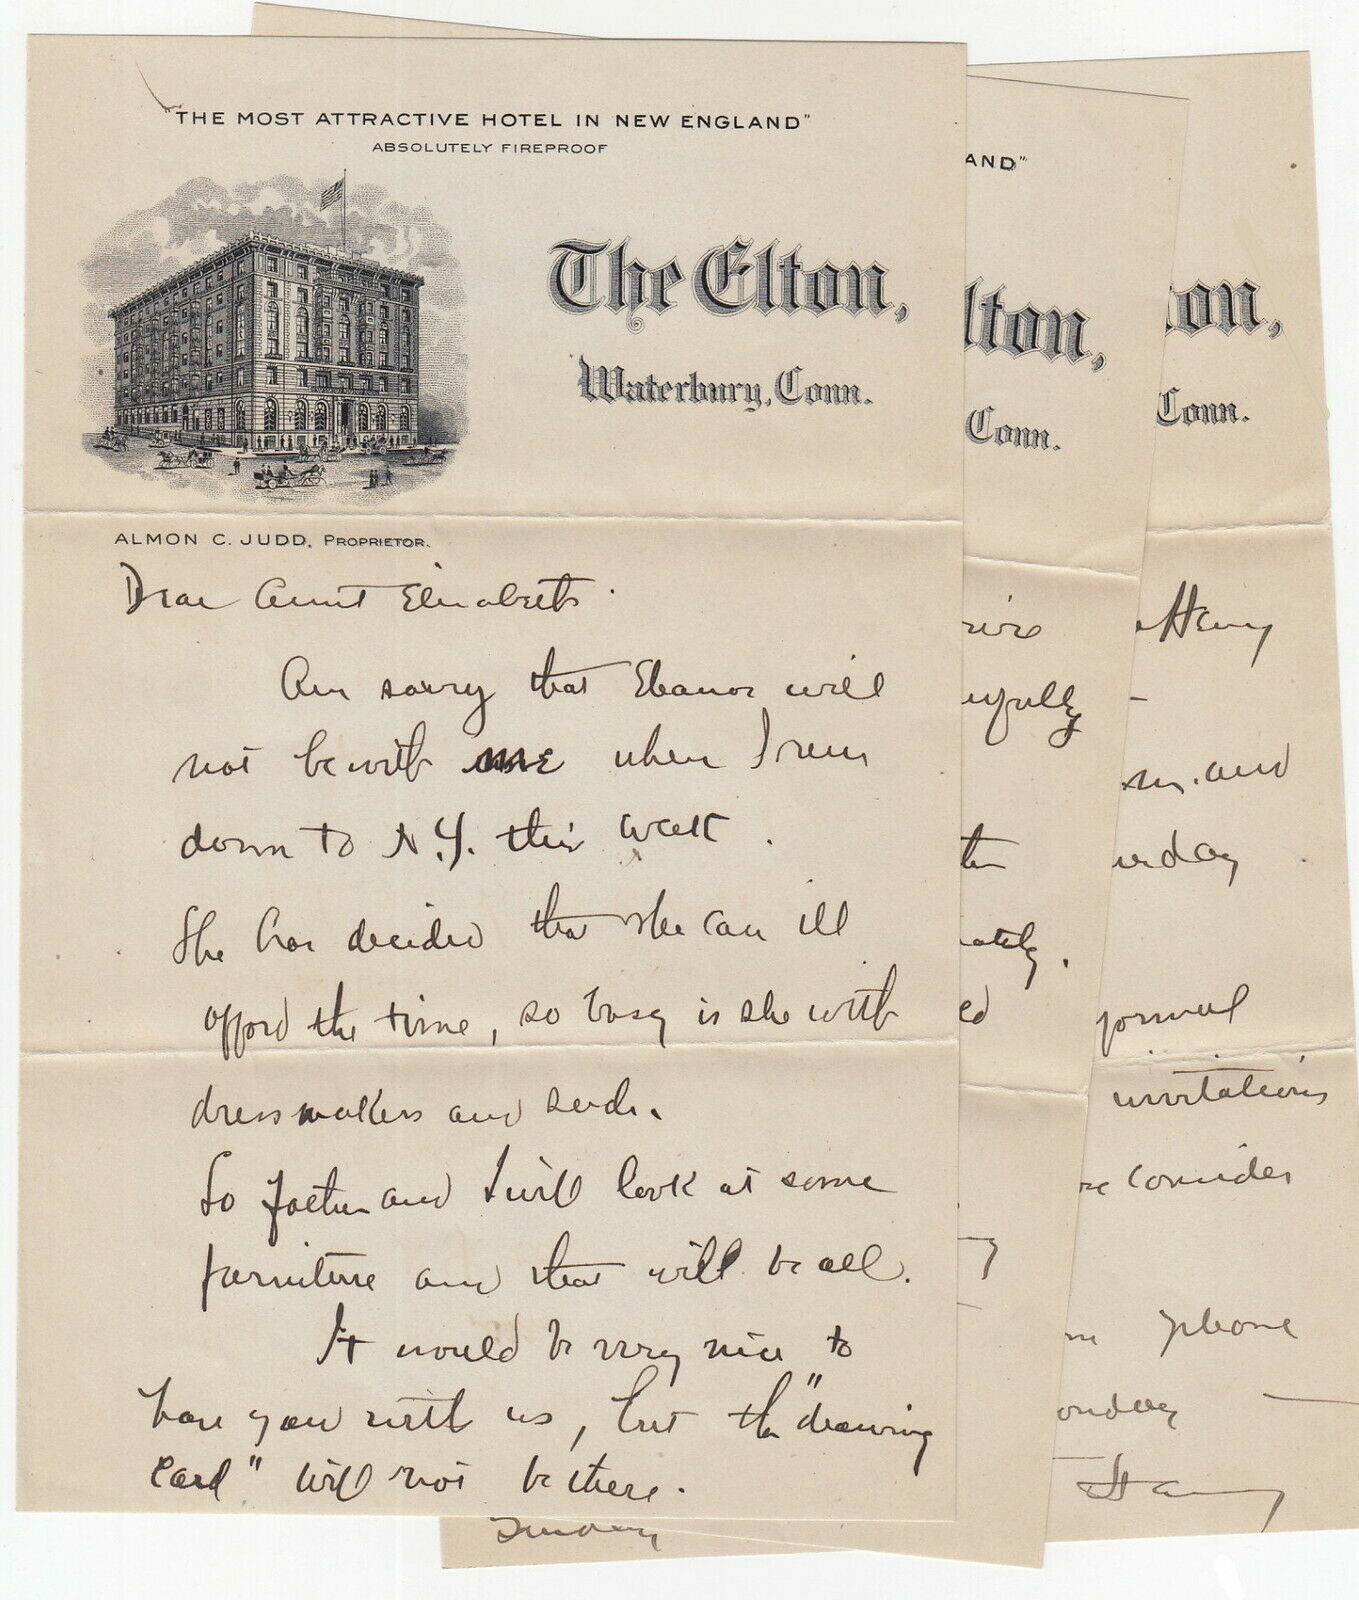 "THE MOST ATTRACTIVE HOTEL IN NEW ENGLAND"
ABSOLUTELY FIREPROOF
The Elton,
Waterbury, Conn.
ALMON C. JUDD, PROPRIETOR.
Dear Aunt Elizabeth.
Am sorry that Eleanor will
not be with me when I run
down to N.Y. this week.
She has decided that she can ill
afford the time, so busy is she with
dressmakers and such.
So father and I will look at some
furniture and that will be all.
It would be very nice to
have you with us, but the "drawing
card" will not be there.
AND"
lton,
Conn.
ully
the
ately.
ed
Sunday
on,
Conn.
Harry
m. and
urday
formal
invitations
consider
phone
onday
Harry